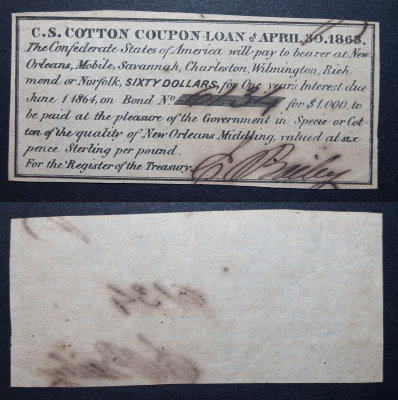 C.S. COTTON COUPON LOAN of APRIL 30. 1863.
The Confederate States of America will pay to bearer at New
Orleans, Mobile, Savannah, Charleston, Wilmington, Rich
mond or Norfolk, SIXTY DOLLARS, for One years Interest due
June 1 1864, on Bond No for $1,000. to
be paid at the pleasure of the Government in Specie or Cot
ton of the quality of New Orleans Middling, valued at six
pence Sterling per pound.
For the Register of the Treasury. Bailey